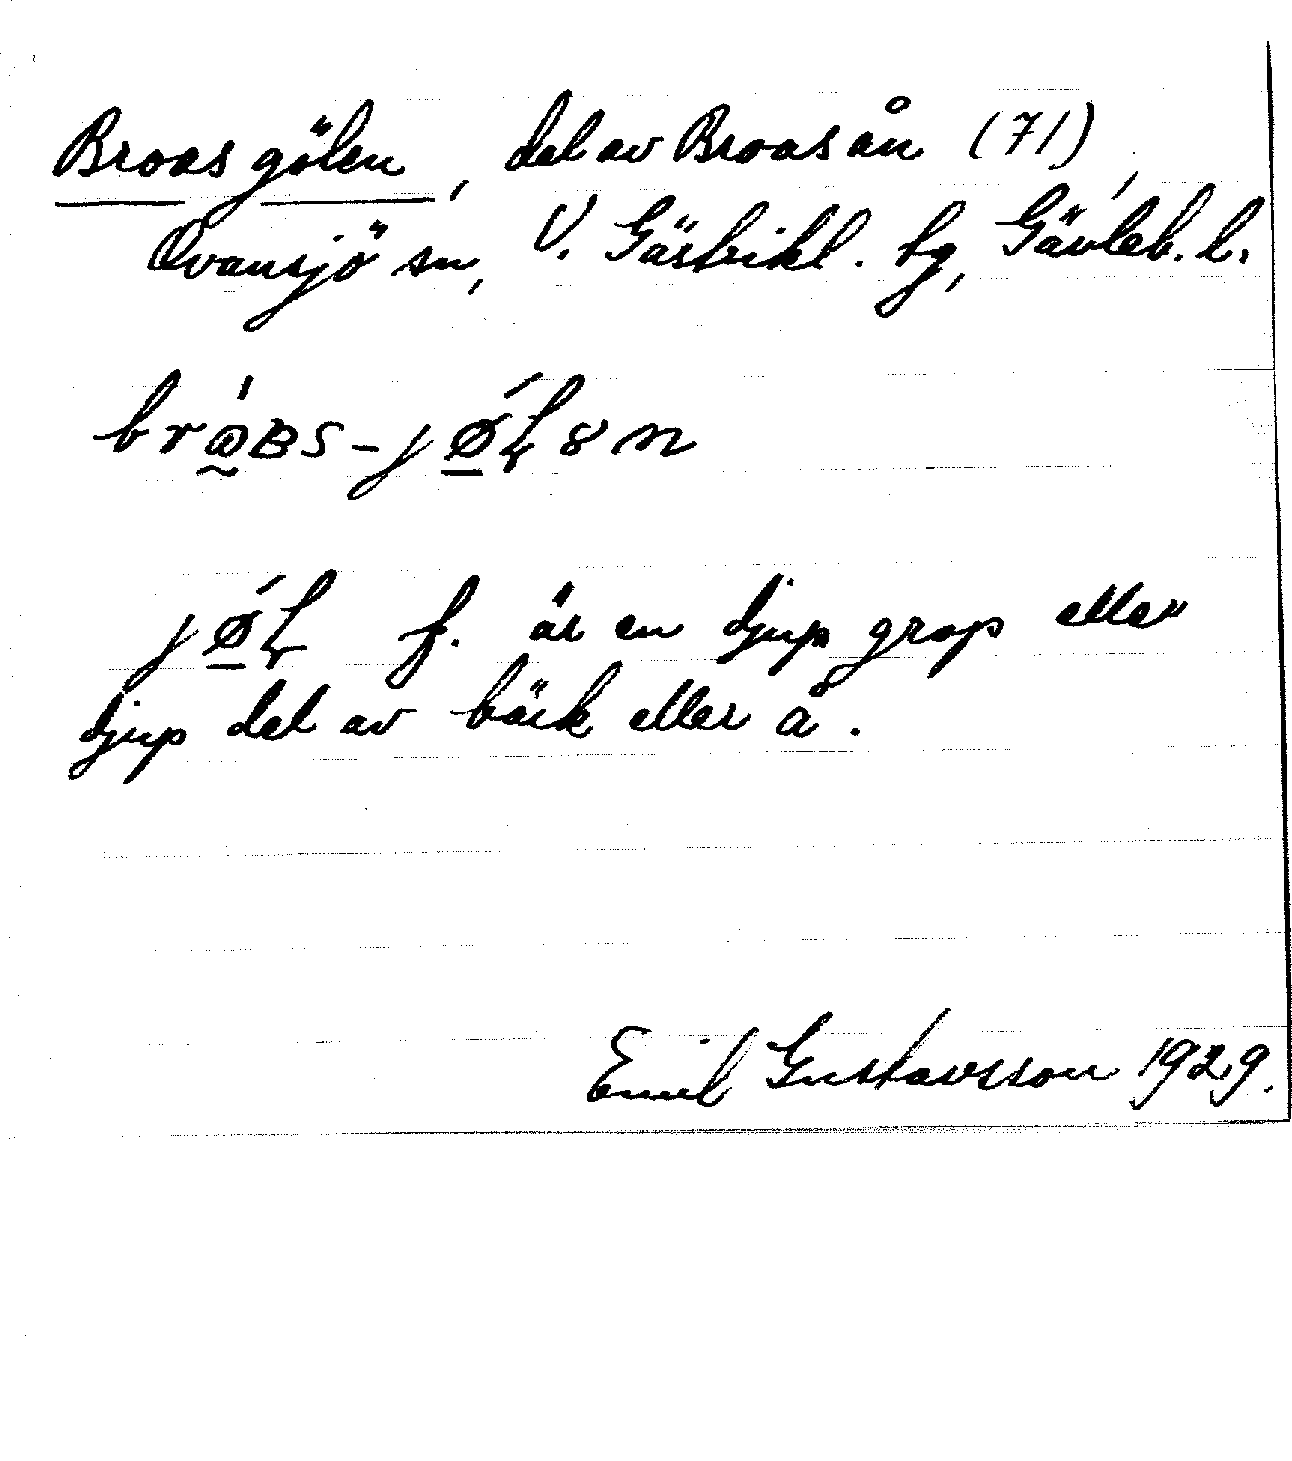 Broasgölen, del av Broasån (71),
Ovansjö sn, V. Gästrikl. tg, Gävleb. l.
jøɭ f. är en djup grop eller
djup del av bäck eller å.
Emil Gustavsson 1929.